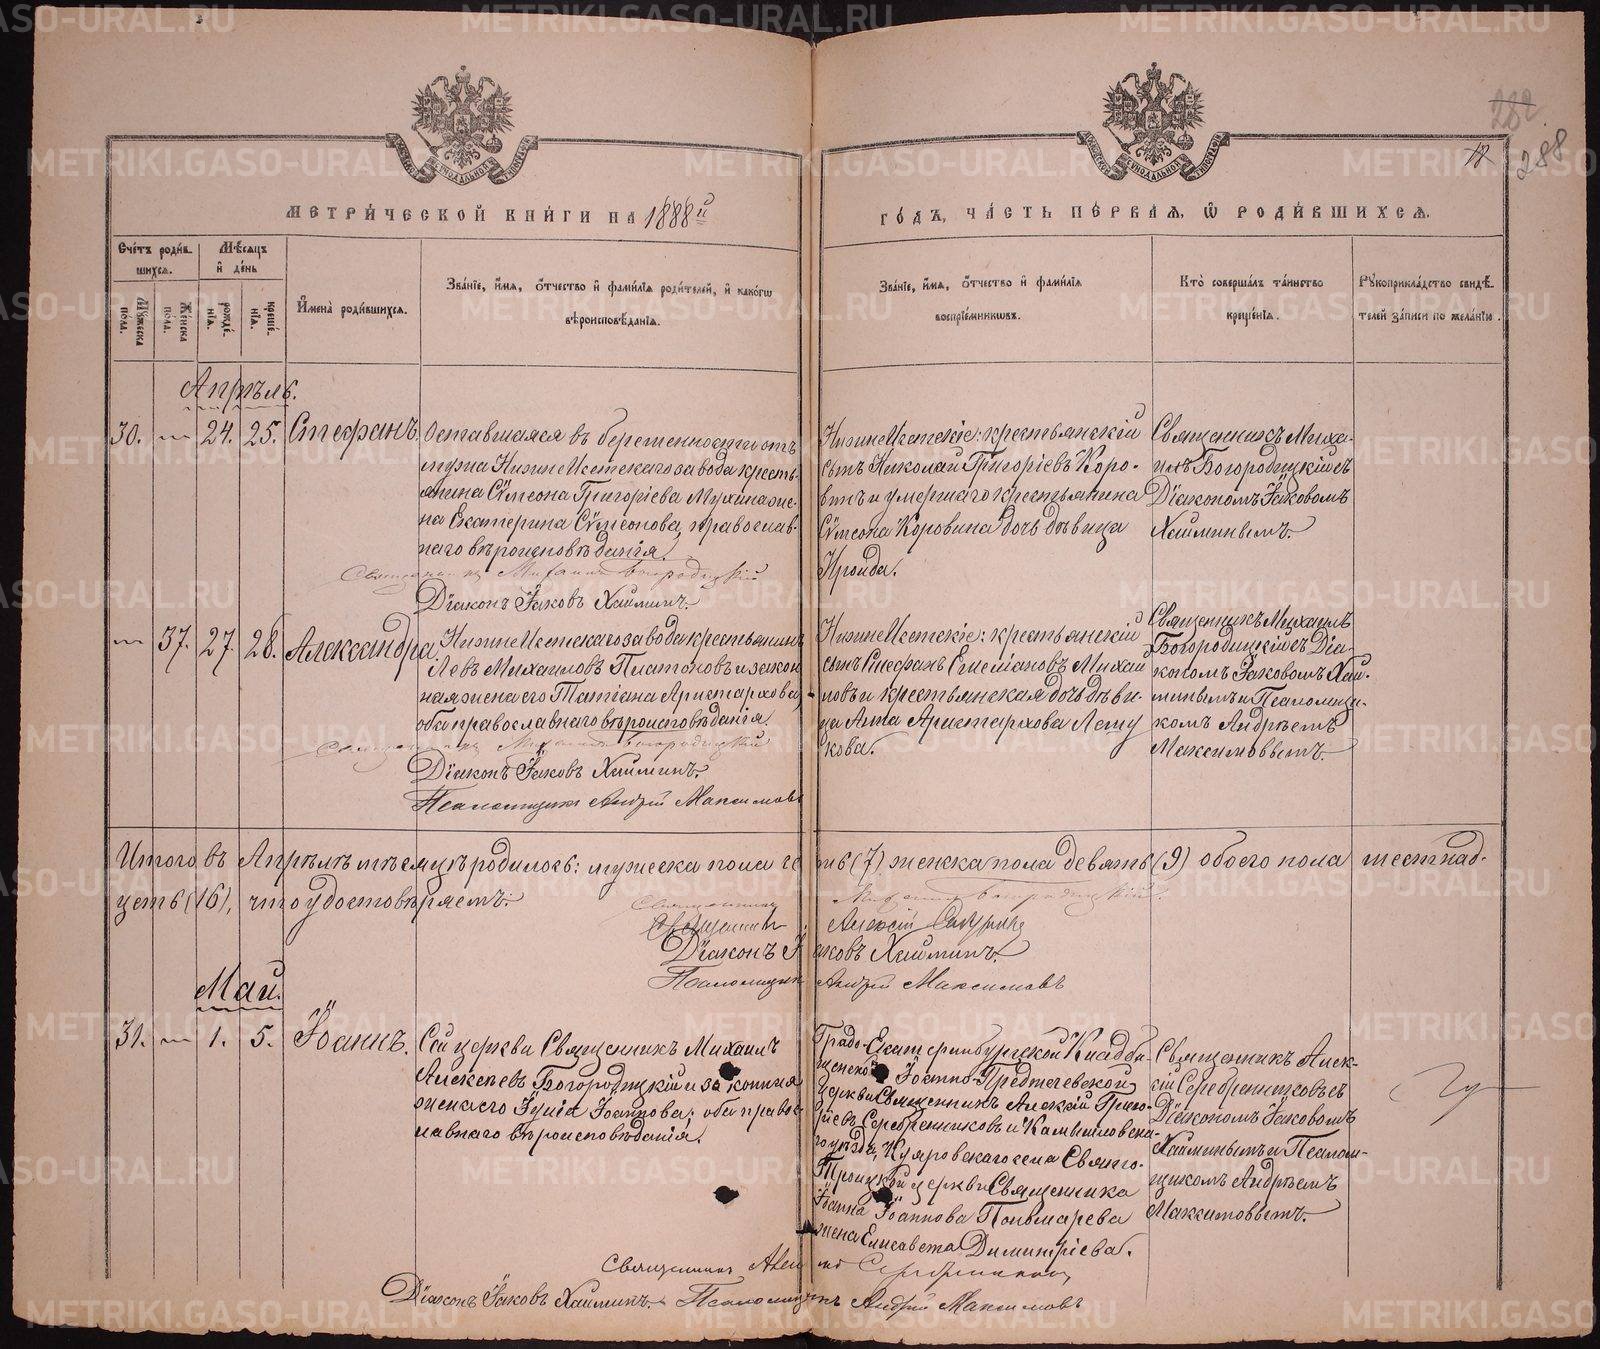 282
12
288
МЕТРИЧЕСКОЙ КНИГИ НА 1888й
ГОДЪ, ЧАСТЬ ПЕРВАЯ, Ѡ РОДИВШИХСЯ.
Счетъ родив-
шихся.
Мужеска пола.
Женска пола.
Мѣсяцъ и день
рожде-
нія.
креще-
нія.
Имена родившихся.
Званіе, имя, отчество и фамилія родителей, и какогѡ
вѣроисповѣданія.
Званіе, имя, отчество и фамилія
воспріемниковъ.
Кто совершалъ таинство
крещенія.
Рукоприкладство свидѣ-
телей записи по желанію.
Апрѣль.
30. — 24. 25. Стефанъ.
Оставшаяся въ беременности отъ
мужа Нижне Исетскаго завода кресть-
янина Сѵмеона Григоріева Мухина же-
на Екатерина Сѵмеонова, православ-
наго вѣроисповѣданія.
Священникъ Михаилъ Богородицкій
Діаконъ Іаковъ Хайминъ.
Нижне Исетскіе: крестьянскій
сынъ Николай Григоріевъ Коро-
винъ и умершаго крестьянина
Сѵмеона Коровина дочь дѣвица
Ироида.
Священникъ Миха-
илъ Богородицкій съ
Діакономъ Іаковомъ
Хайминымъ.
— 37. 27. 28. Александра
Нижне Исетскаго завода крестьянинъ
Левъ Михаиловъ Платоновъ и закон
ная жена его Татіана Аристархова,
оба православнаго вѣроисповѣданія.
Священникъ Михаилъ Богородицкій
Діаконъ Іаковъ Хайминъ.
Псаломщикъ Андрей Максимовъ
Нижне Исетскіе: крестьянскій
сынъ Стефанъ Емеліановъ Михаи
ловъ и крестьянская дочь дѣви-
ца Анна Аристархова Лету
кова.
Священникъ Михаилъ
Богородицкій съ Діа-
кономъ Іаковомъ Хай-
минымъ и Псаломщи-
комъ Андреемъ
Максимовымъ.
Итого въ Апрѣлѣ мѣсяцѣ родилось: мужеска пола семь (7) женска пола девять (9) обоего пола шестнад-
цать (16), что удостовѣряемъ.
Священникъ Михаилъ Богородицкій.
Священникъ Алексій
Діаконъ Іаковъ Хайминъ.
Псаломщикъ Андрей Максимовъ
Май.
31. — 1. 5. Іоаннъ.
Сей церкви Священникъ Михаилъ
Алексѣевъ Богородицкій и законная
жена его Іулія Іоаннова; оба право
славнаго вѣроисповѣданія.
Градо-Екатеринбургской Кладби-
щенской Іоанно-Предтечевской
церкви Священникъ Алексій Григо-
ріевъ Серебренниковъ и Камышловска-
го уѣзда, Куяровскаго села Свято-
Троицкой церкви Священника
Іоанна Іоаннова Пономарева
жена Елисавета Димитріева.
Священникъ Алек-
сій Серебренниковъ съ
Діакономъ Іаковомъ
Хайминымъ и Псалом-
щикомъ Андреемъ
Максимовымъ.
Священникъ Алексій Серебренниковъ
Діаконъ Іаковъ Хайминъ. Псаломщикъ Андрей Максимовъ
METRIKI.GASO-URAL.RU